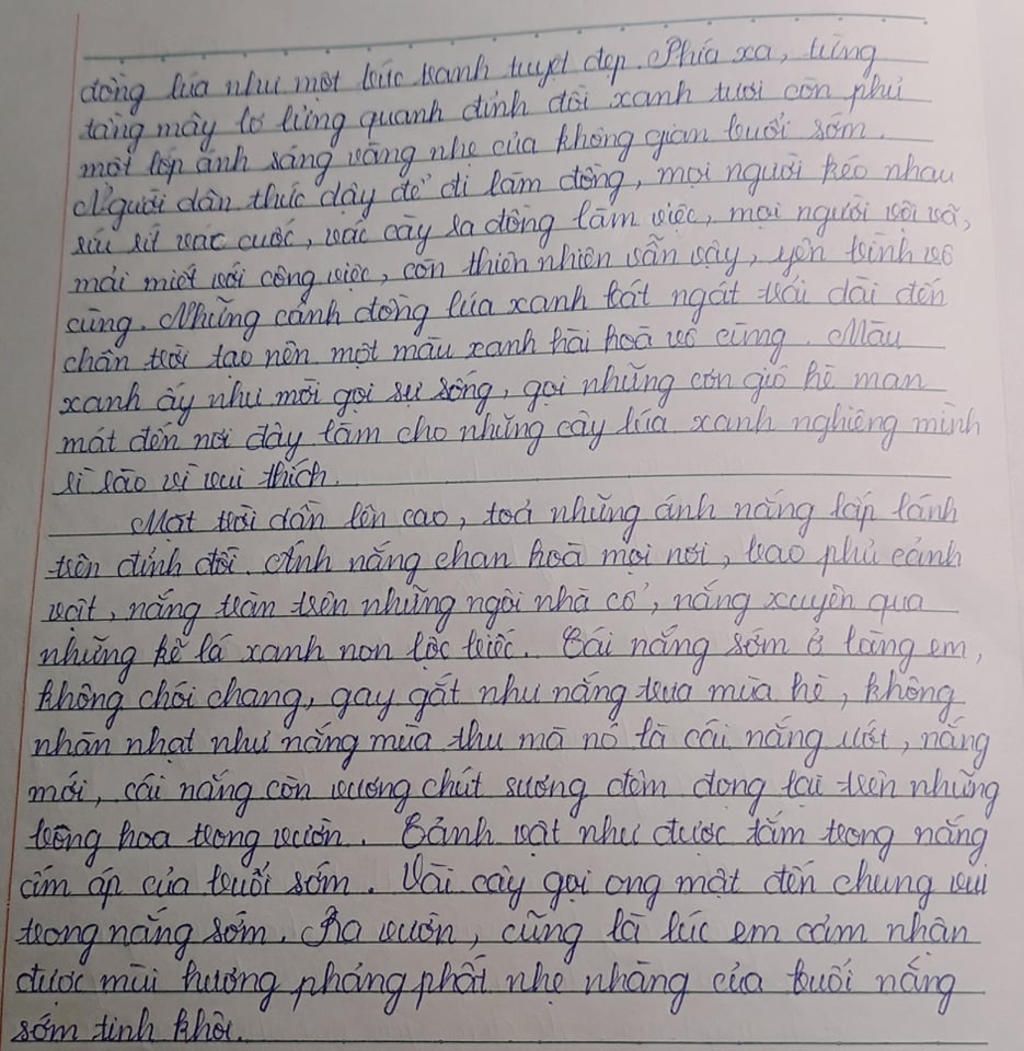 đồng lúa như một bức tranh tuyệt đẹp. Phía xa, từng
tầng mây lơ lửng quanh đỉnh đồi xanh tươi còn phủ
một lớp ánh sáng vàng nhẹ của không gian buổi sớm.
Người dân thức dậy để đi làm đồng, mọi người kéo nhau
ríu rít vác cuốc, vác cày ra đồng làm việc, mọi người vội vã,
mải miết với công việc, còn thiên nhiên vẫn vậy, yên bình vô
cùng. Những cánh đồng lúa xanh bát ngát trải dài đến
chân trời tạo nên một màu xanh hài hoà vô cùng. Màu
xanh ấy như mời gọi sự sống, gọi những cơn gió hè man
mát đến nơi đây làm cho những cây lúa xanh nghiêng mình
rì rào vì vui thích.
Mặt trời dần lên cao, toả những ánh nắng lấp lánh
trên đỉnh đồi. Ánh nắng chan hoà mọi nơi, bao phủ cảnh
vật, nắng tràn trên những ngôi nhà cổ, nắng xuyên qua
những kẽ lá xanh non lộc biếc. Cái nắng sớm ở làng em,
không chói chang, gay gắt như nắng trưa mùa hè, không
nhàn nhạt như nắng mùa thu mà nó là cái nắng ướt, nắng
mới, cái nắng còn vương chút sương đêm đọng lại trên những
bông hoa trong vườn. Cảnh vật như được tắm trong nắng
ấm áp của buổi sớm. Vài cây gọi ong mật đến chung vui
trong nắng sớm. Ra vườn, cũng là lúc em cảm nhận
được mùi hương phảng phất nhẹ nhàng của buổi nắng
sớm tinh khôi.